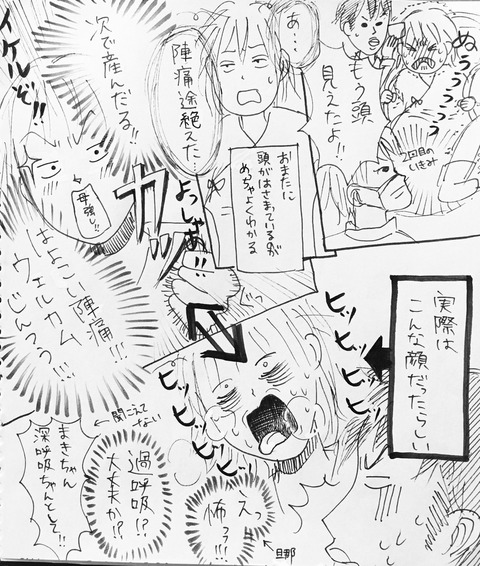 ぬううううっっ
もう頭
見えたよ!!
2回目の
いきみ
あ…
陣痛途絶えた…
おまたに
頭がはさまっているのが
めちゃよくわかる
次で産んだる!!
イケルぞ!!
母強し!!
カッ
よっしゃあ!!
はよこい陣痛!!!
ウェルカム
じんつう!!!
実際は
こんな顔だったらしい
ヒッ
ヒッ
ヒッ
ヒッ
ヒッ
ヒッ
ヒッ
ヒッ
えっ
怖っ!!!
旦那
過呼吸!?
大丈夫か!?
聞こえて
ない
まきちゃん
深呼吸ちゃんとして!!